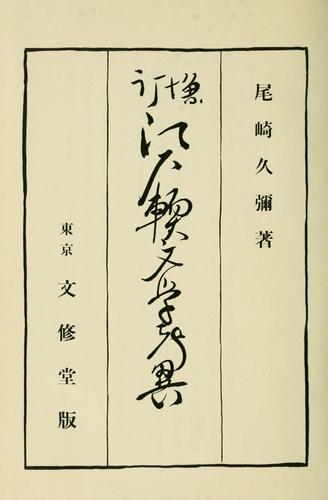 尾崎久彌著
増訂
江戸輭文学考異
東京 文修堂版